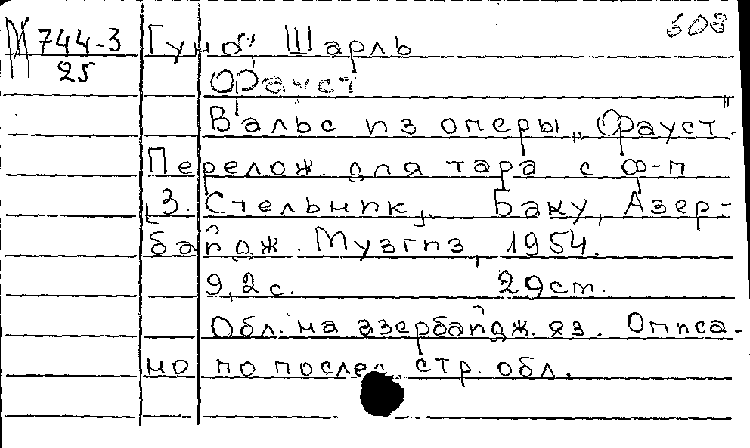 М 744-3 Гуно Шарль 608
25
Фауст
Вальс из оперы „Фауст".
Перелож. для тара с ф-п
З. Стельник, Баку, Азер-
байдж. Музгиз, 1954.
9,2 с. 29 cm.
Обл. на азербайдж. яз. Описа-
но по послед. стр. обл.